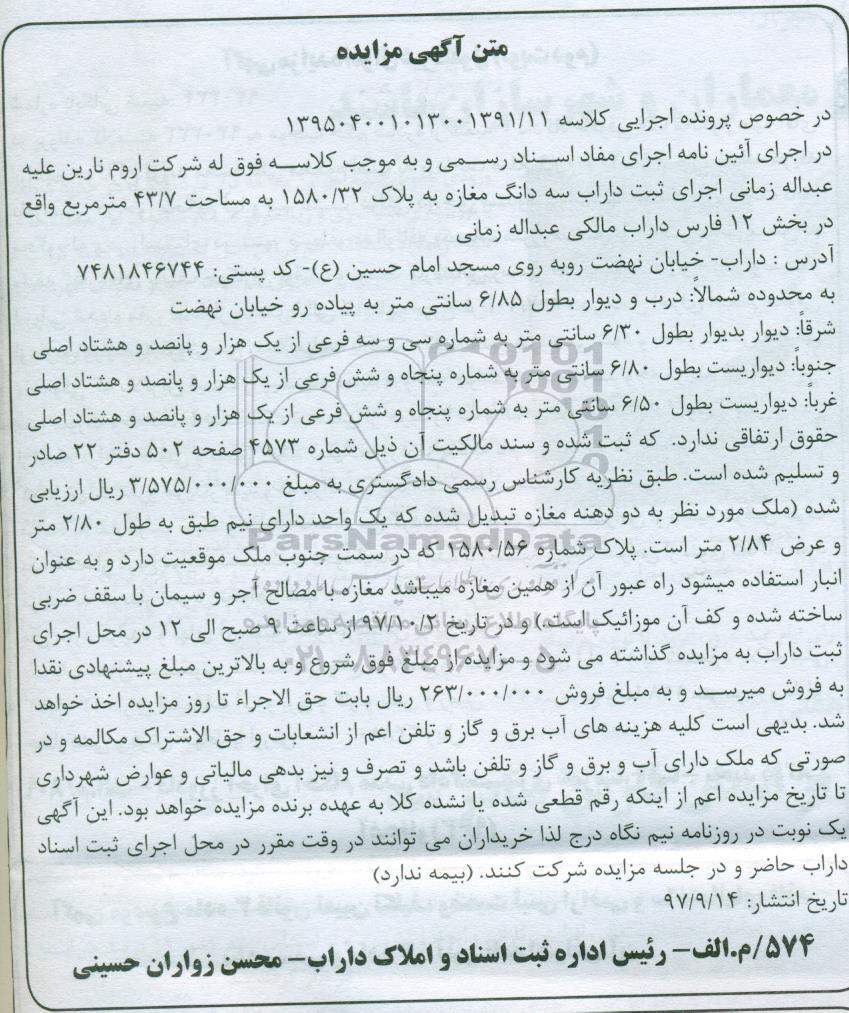 متن آگهی مزایده
در خصوص پرونده اجرایی کلاسه ۱۳۹۵۰۴۰۰۱۰۱۳۰۰۱۳۹۱/۱۱
در اجرای آئین نامه اجرای مفاد اسناد رسمی و به موجب کلاسه فوق له شرکت اروم نارین علیه
عبداله زمانی اجرای ثبت داراب سه دانگ مغازه به پلاک ۱۵۸۰/۳۲ به مساحت ۴۳/۷ مترمربع واقع
در بخش ۱۲ فارس داراب مالکی عبداله زمانی
آدرس : داراب- خیابان نهضت روبه روی مسجد امام حسین (ع)- کد پستی: ۷۴۸۱۸۴۶۷۴۴
به محدوده شمالاً: درب و دیوار بطول ۶/۸۵ سانتی متر به پیاده رو خیابان نهضت
شرقاً: دیوار بدیوار بطول ۶/۳۰ سانتی متر به شماره سی و سه فرعی از یک هزار و پانصد و هشتاد اصلی
جنوباً: دیواریست بطول ۶/۸۰ سانتی متر به شماره پنجاه و شش فرعی از یک هزار و پانصد و هشتاد اصلی
غرباً: دیواریست بطول ۶/۵۰ سانتی متر به شماره پنجاه و شش فرعی از یک هزار و پانصد و هشتاد اصلی
حقوق ارتفاقی ندارد. که ثبت شده و سند مالکیت آن ذیل شماره ۴۵۷۳ صفحه ۵۰۲ دفتر ۲۲ صادر
و تسلیم شده است. طبق نظریه کارشناس رسمی دادگستری به مبلغ ۳/۵۷۵/۰۰۰/۰۰۰ ریال ارزیابی
شده (ملک مورد نظر به دو دهنه مغازه تبدیل شده که یک واحد دارای نیم طبق به طول ۲/۸۰ متر
و عرض ۲/۸۴ متر است. پلاک شماره ۱۵۸۰/۵۶ که در سمت جنوب ملک موقعیت دارد و به عنوان
انبار استفاده میشود راه عبور آن از همین مغازه میباشد مغازه با مصالح آجر و سیمان با سقف ضربی
ساخته شده و کف آن موزائیک است.) و در تاریخ ۹۷/۱۰/۲ از ساعت ۹ صبح الی ۱۲ در محل اجرای
ثبت داراب به مزایده گذاشته می شود و مزایده از مبلغ فوق شروع و به بالاترین مبلغ پیشنهادی نقدا
به فروش میرسد و به مبلغ فروش ۲۶۳/۰۰۰/۰۰۰ ریال بابت حق الاجراء تا روز مزایده اخذ خواهد
شد. بدیهی است کلیه هزینه های آب برق و گاز و تلفن اعم از انشعابات و حق الاشتراک مکالمه و در
صورتی که ملک دارای آب و برق و گاز و تلفن باشد و تصرف و نیز بدهی مالیاتی و عوارض شهرداری
تا تاریخ مزایده اعم از اینکه رقم قطعی شده یا نشده کلا به عهده برنده مزایده خواهد بود. این آگهی
یک نوبت در روزنامه نیم نگاه درج لذا خریداران می توانند در وقت مقرر در محل اجرای ثبت اسناد
داراب حاضر و در جلسه مزایده شرکت کنند. (بیمه ندارد)
تاریخ انتشار: ۹۷/۹/۱۴
۵۷۴/م.الف- رئیس اداره ثبت اسناد و املاک داراب- محسن زواران حسینی
ParsNamadData